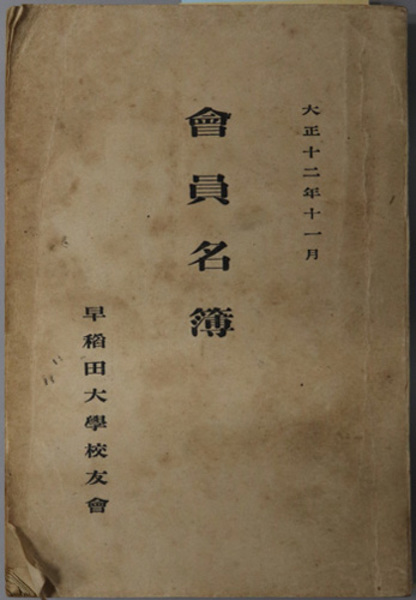 大正十二年十一月
會員名簿
早稻田大學校友會